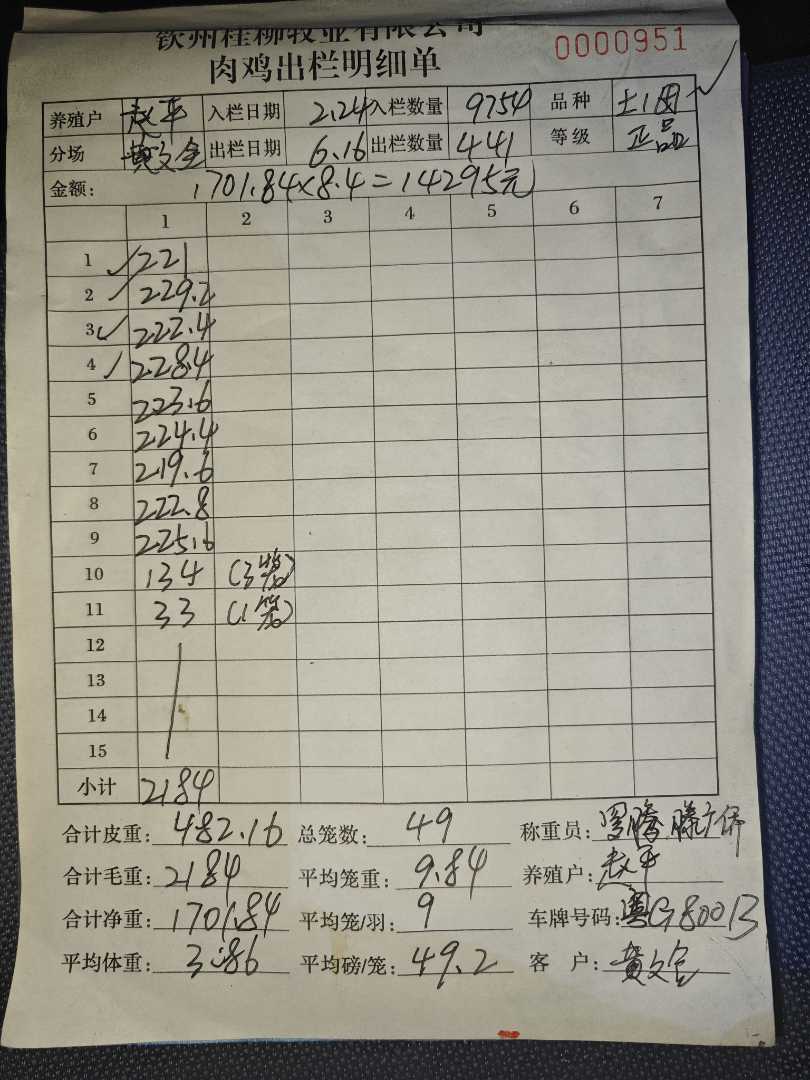 钦州桂柳牧业有限公司
肉鸡出栏明细单 0000951
养殖户 赵平 入栏日期 2.24 入栏数量 9754 品种 土1阉
分场 黄文全 出栏日期 6.16 出栏数量 441 等级 正品
金额: 1701.84×8.4=14295元
1 2 3 4 5 6 7
1 221
2 229.2
3 222.4
4 228.4
5 223.6
6 224.4
7 219.6
8 222.8
9 225.6
10 134 (3笼)
11 33 (1笼)
12
13
14
15
小计 2184
合计皮重: 482.16 总笼数: 49 称重员:
合计毛重: 2184 平均笼重: 9.84 养殖户: 赵平
合计净重: 1701.84 平均笼/羽: 9 车牌号码: 粤G80013
平均体重: 3.86 平均磅/笼: 49.2 客 户: 黄文全